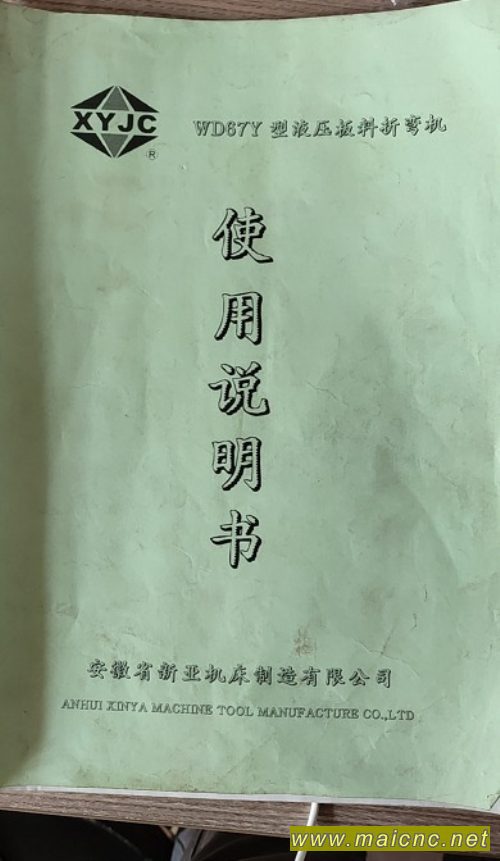 XYJC
®
WD67Y 型液压板料折弯机
使用说明书
安徽省新亚机床制造有限公司
ANHUI XINYA MACHINE TOOL MANUFACTURE CO.,LTD
www.maicnc.net